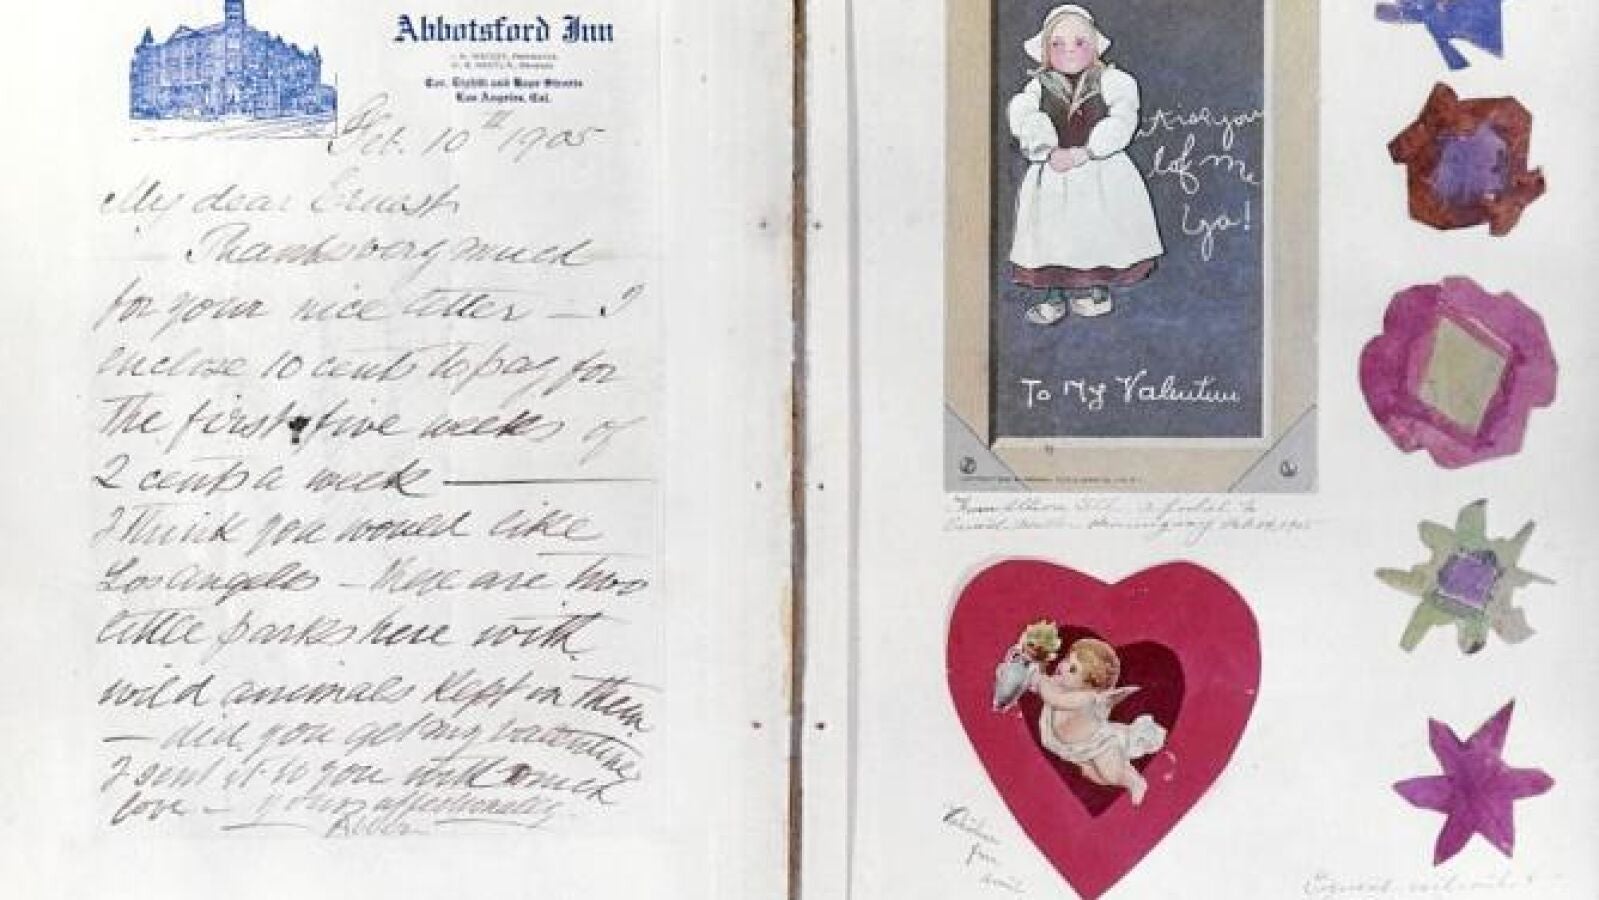 Abbotsford Inn
Cor. Eighth and Hope Streets
Los Angeles, Cal.
Feb. 10th 1905
My dear Ernest,
Thanks very much
for your nice letter — I
enclose 10 cents to pay for
the first five weeks of
2 cents a week
I think you would like
Los Angeles — there are two
little parks here with
wild animals kept in them
— did you get my valentine
I sent it to you with much
love — yours affectionately
Vish you
lof me
Ya!
To My Valentine